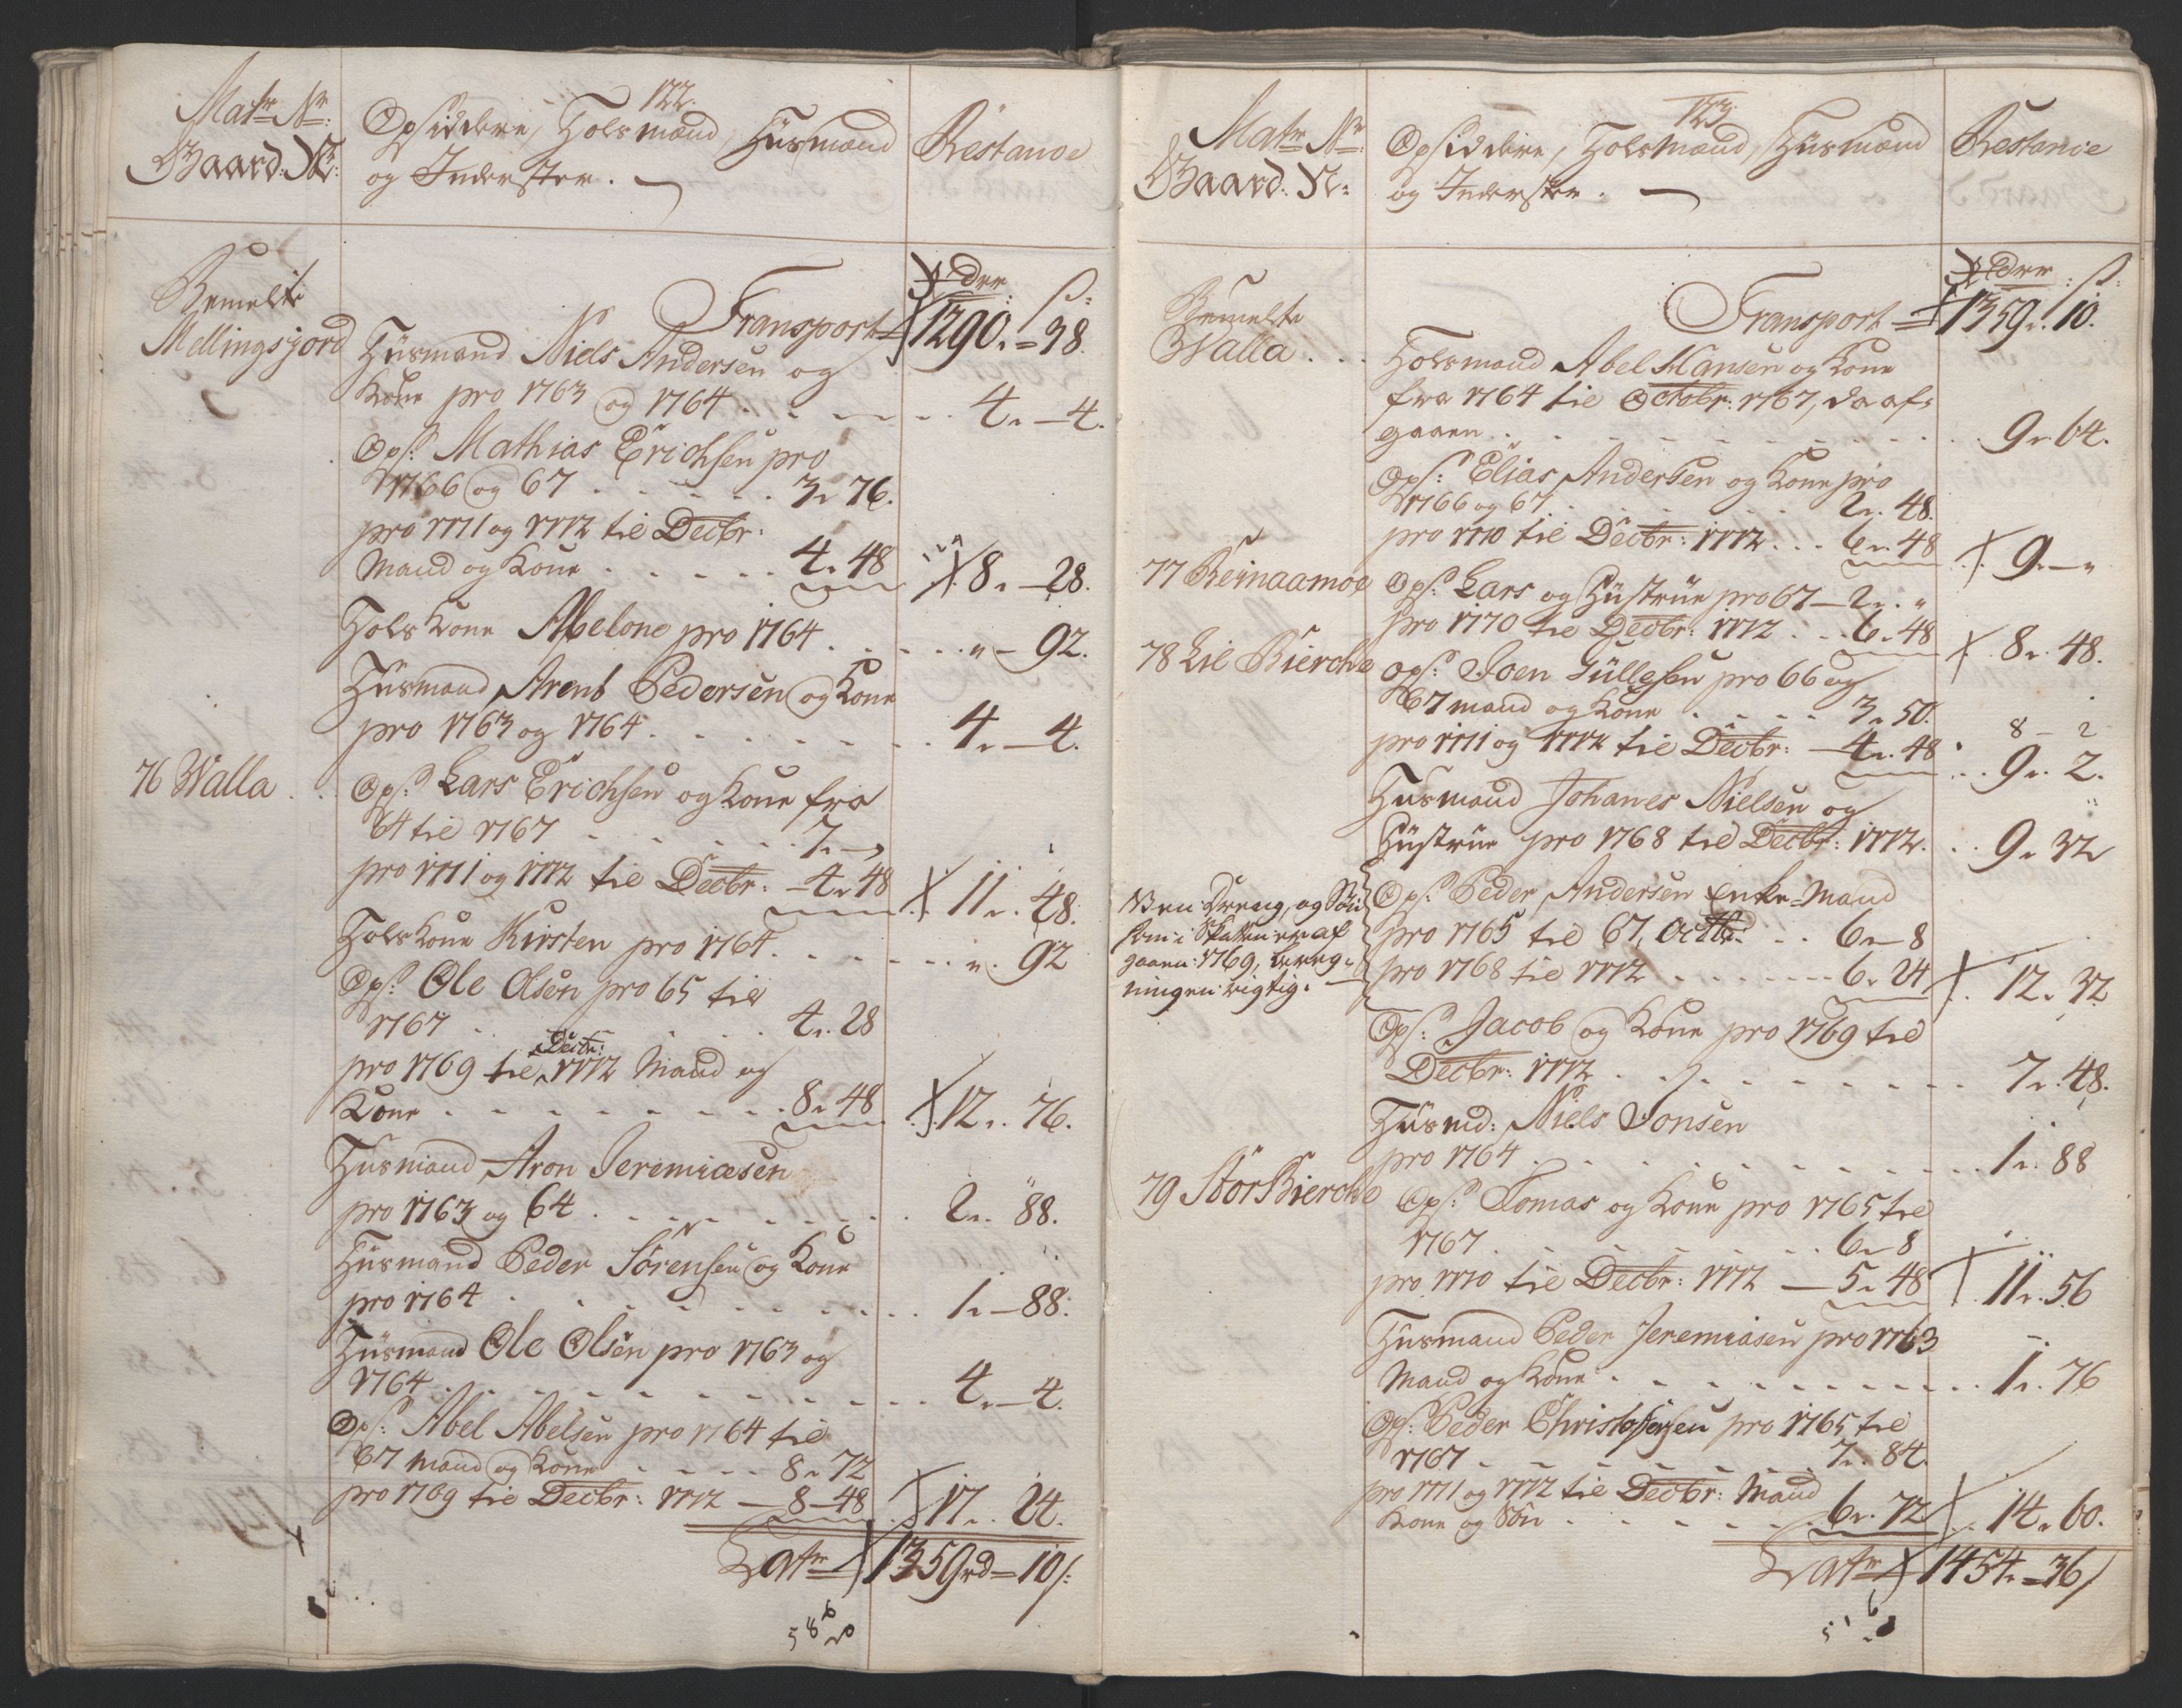 122.
Matr Nr: Opsiddere, Folsmænd, Huusmænd Restance
Gaard: N: og Inderster.
rdr: s:
Bemelte Transport 1290. = 38.
Mellingsjord Huusmand Niels Andersen og
Kone pro 1763 og 1764 4. — 4.
Ops: Mathias Erichsen pro
1766 og 67 . . . 3. 76.
pro 1771 og 1772 til Decbr:
Mand og Kone . . . 4. 48 8. — 28.
Fols Kone Abelone pro 1764 . . . " — 92.
Huusmand Arent Pedersen og Kone
pro 1763 og 1764 . . . 4. — 4.
76 Walla . . Ops: Lars Erichsen og Kone fra
64 til 1767 . . . 7. —
pro 1771 og 1772 til Decbr: — 4. 48 11. 48.
Fols Kone Kirsten pro 1764 . . . ". 92
Ops: Ole Olsen pro 65 til
1767 . . . 4. 28
pro 1769 til Decbr: 1772 Mand og
Kone . . . 8. 48 12. 76.
Huusmand Aron Jeremiæsen
pro 1763 og 64 . . . 2. 88.
Huusmand Peder Sörensen og Kone
pro 1764 . . . 1. — 88.
Huusmand Ole Olsen pro 1763 og
1764 . . . 4. — 4.
Ops: Abel Abelsen pro 1764 til
67 Mand og Kone . . . 8. 72
pro 1769 til Decbr: 1772 — 8 — 48 17. 24.
Latr 1359 rd = 10 s:
123.
Matr Nr: Opsiddere, Folsmænd, Huusmænd Restance
Gaard: N: og Inderster.
rdr: s:
Bemelte Transport = 1359. 10.
Walla . . . Folsmand Abel Hansen og Kone
fra 1764 til Octobr: 1767, da af-
gaaen . . . 9. 64.
Ops: Elias Andersen og Kone pro
1766 og 67 . . . 2. 48.
pro 1770 til Decbr: 1772 . . . 6. 48 9. — "
77 Reinaamoe Ops: Lars og Hustrue pro 67 — 2. "
pro 1770 til Decbr: 1772 . . . 6. 48 8. 48.
78 Lil Bierche Ops: Joen Gullesen pro 66 og
67 Mand og Kone . . . 3. 50.
8 — 2
pro 1771 og 1772 til Decbr: — 4. 48 . . 9. 2.
Huusmand Johanes Nielsen og
Hustrue pro 1768 til Decbr: 1772. . . 9. 32
Ops: Peder Andersen Enke-Mand
pro 1765 til 67, Octbr: . . 6. — 8
pro 1768 til 1772 . . . 6. 24 12. 32
Dreng, og Søn
som i Skatten er af
gaaen 1769, bereg-
ningen rigtig.
Ops: Jacob og Kone pro 1769 til
Decbr: 1772 . . . 7. 48.
Huusmd: Niels Jonsen
pro 1764 . . . 1. 88
79 Stor Bierche Ops: Tomas og Kone pro 1765 til
1767 . . . 6. — 8
pro 1770 til Decbr: 1772 — 5. 48 11. 56
Huusmand Peder Jeremiasen pro 1763
Mand og Kone . . . 1. 76
Ops: Peder Christophersen pro 1765 til
1767 . . . 7. 84.
pro 1771 og 1772 til Decbr: Mand
Kone og Sön . . . 6. 72 14. 60.
Latr 1454. = 36 s